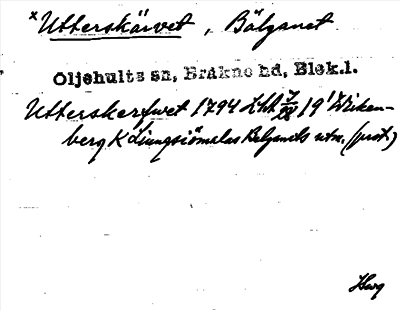 ×Utterskärvet, Bälganet
Oljehults sn, Bräkne hd, Blek.l.
Utterskerfwet 1794 Lht 19 Wieken-
berg K Liungsiömålas Belganets utm. (prot.)